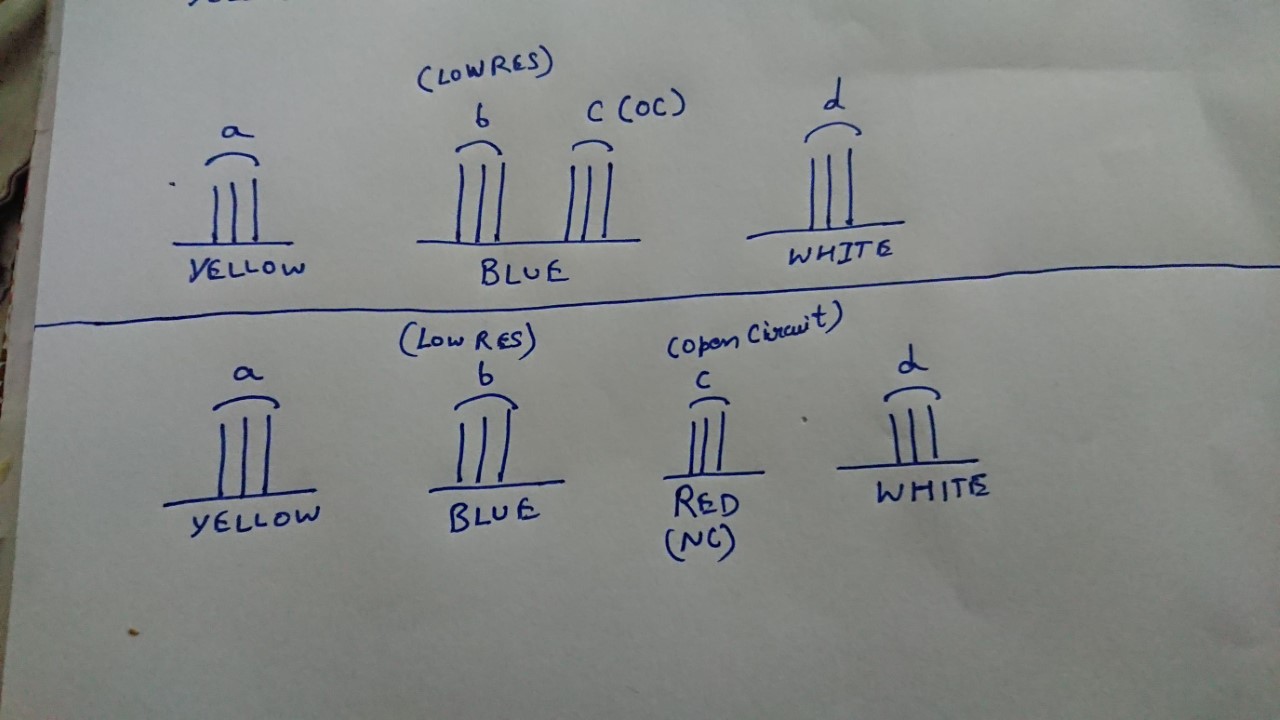 (LOW RES)
a b C (OC) d
YELLOW BLUE WHITE
(LOW RES) (Open Circuit)
a b C d
YELLOW BLUE RED WHITE
(NC)